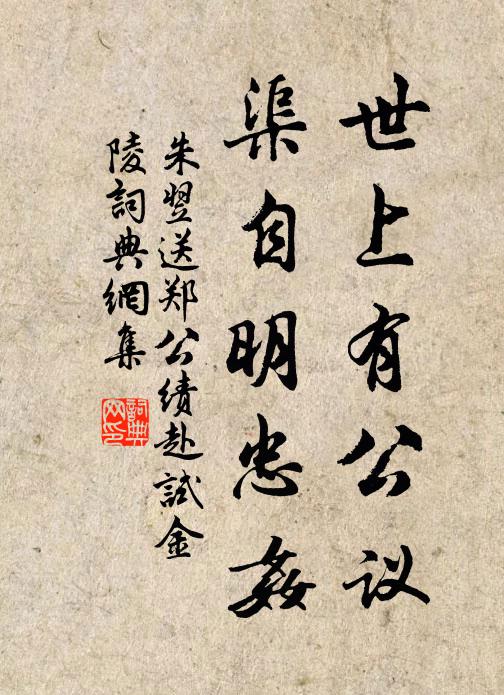 世上有公议
渠自明忠姦
朱翌送郑公績赴試金
陵詞典網集
詞典网印